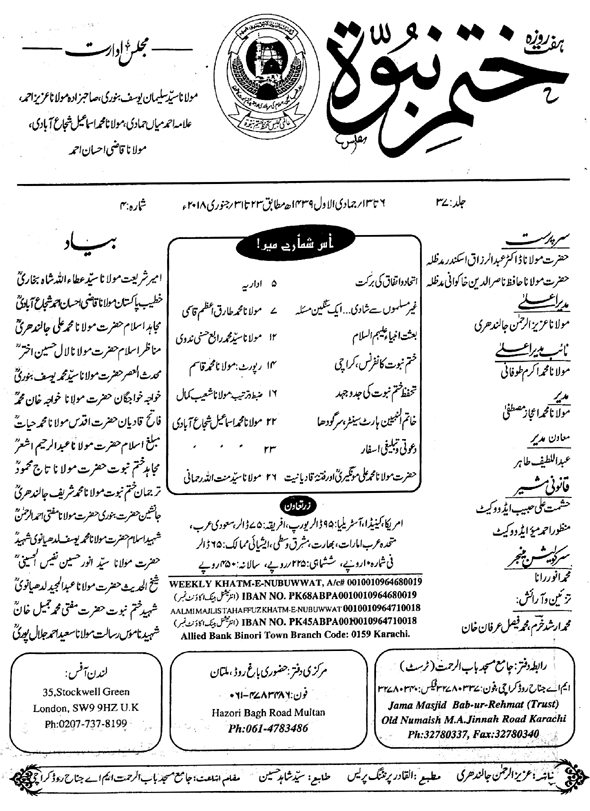 ہفت روزہ
ختم نبوۃ
مجلس
مجلس ادارت
مولانا سید سلیمان یوسف بنوری، صاحبزادہ مولانا عزیز احمد،
علامہ احمد میاں حمادی، مولانا محمد اسماعیل شجاع آبادی،
مولانا قاضی احسان احمد
جلد: ۳۷
۶ تا ۱۳/ جمادی الاول ۱۴۳۹ھ مطابق ۲۳ تا ۳۱/ جنوری ۲۰۱۸ء
شمارہ: ۴
سرپرست
حضرت مولانا ڈاکٹر عبدالرزاق اسکندر مدظلہ
حضرت مولانا حافظ ناصر الدین خاکوانی مدظلہ
مدیر اعلیٰ
مولانا عزیز الرحمٰن جالندھری
نائب مدیر اعلیٰ
مولانا محمد اکرم طوفانی
مدیر
مولانا محمد اعجاز مصطفیٰ
معاون مدیر
عبداللطیف طاہر
قانونی مشیر
حشمت علی حبیب ایڈووکیٹ
منظور احمد میو ایڈووکیٹ
سرکولیشن منیجر
محمد انور رانا
تزئین و آرائش:
محمد ارشد خرم، محمد فیصل عرفان خان
اس شمارے میں!
اتحاد و اتفاق کی برکت ۵ اداریہ
غیر مسلموں سے شادی... ایک سنگین مسئلہ ۷ مولانا محمد طارق اعظم قاسمی
بعثت انبیاء علیہم السلام ۱۲ مولانا سید محمد رابع حسنی ندوی
ختم نبوت کانفرنس، کراچی ۱۴ رپورٹ: مولانا محمد قاسم
تحفظ ختم نبوت کی جدوجہد ۱۶ ضبط و ترتیب مولانا شعیب کمال
خاتم النبیین ہارٹ سینٹر، سرگودھا ۲۲ مولانا محمد اسماعیل شجاع آبادی
دعوتی و تبلیغی اسفار ۲۳ " " "
حضرت مولانا محمد علی مونگیریؒ اور فتنہ قادیانیت ۲۶ مولانا سید منت اللہ رحمانی
زر تعاون
امریکا، کینیڈا، آسٹریلیا: ۹۵ ڈالر یورپ، افریقہ: ۷۵ ڈالر، سعودی عرب،
متحدہ عرب امارات، بھارت، مشرق وسطیٰ، ایشیائی ممالک: ۶۵ ڈالر
فی شمارہ ۱۰ روپے، ششماہی: ۲۲۵ روپے، سالانہ: ۴۵۰ روپے
WEEKLY KHATM-E-NUBUWWAT, A/c# 0010010964680019
IBAN NO. PK68ABPA0010010964680019 (انٹرنیشنل بینک اکاؤنٹ نمبر)
AALMI MAJLIS TAHAFFUZ KHATM-E-NUBUWWAT 0010010964710018
IBAN NO. PK45ABPA0010010964710018 (انٹرنیشنل بینک اکاؤنٹ نمبر)
Allied Bank Binori Town Branch Code: 0159 Karachi.
بیاد
امیر شریعت مولانا سید عطاء اللہ شاہ بخاریؒ
خطیب پاکستان مولانا قاضی احسان احمد شجاع آبادیؒ
مجاہد اسلام حضرت مولانا محمد علی جالندھریؒ
مناظر اسلام حضرت مولانا لال حسین اخترؒ
محدث العصر حضرت مولانا سید محمد یوسف بنوریؒ
خواجہ خواجگان حضرت مولانا خواجہ خان محمدؒ
فاتح قادیان حضرت اقدس مولانا محمد حیاتؒ
مبلغ اسلام حضرت مولانا عبدالرحیم اشعرؒ
مجاہد ختم نبوت حضرت مولانا تاج محمودؒ
ترجمان ختم نبوت مولانا محمد شریف جالندھریؒ
جانشین حضرت بنوری حضرت مولانا مفتی احمد الرحمٰنؒ
شہید اسلام حضرت مولانا محمد یوسف لدھیانوی شہیدؒ
حضرت مولانا سید انور حسین نفیس الحسینیؒ
شیخ الحدیث حضرت مولانا عبدالمجید لدھیانویؒ
شہید ختم نبوت حضرت مفتی محمد جمیل خانؒ
شہید ناموس رسالت مولانا سعید احمد جلال پوریؒ
رابطہ دفتر: جامع مسجد باب الرحمت (ٹرسٹ)
ایم اے جناح روڈ کراچی، فون: ۳۲۷۸۰۳۳۷ فیکس: ۳۲۷۸۰۳۴۰
Jama Masjid Bab-ur-Rehmat (Trust)
Old Numaish M.A.Jinnah Road Karachi
Ph:32780337, Fax:32780340
مرکزی دفتر: حضوری باغ روڈ، ملتان
فون: ۰۶۱-۴۷۸۳۴۸۶
Hazori Bagh Road Multan
Ph:061-4783486
لندن آفس:
35,Stockwell Green
London, SW9 9HZ U.K
Ph:0207-737-8199
ناشر: عزیز الرحمٰن جالندھری مطبع: القادر پرنٹنگ پریس طابع: سید شاہد حسین مقام اشاعت: جامع مسجد باب الرحمت ایم اے جناح روڈ کراچی